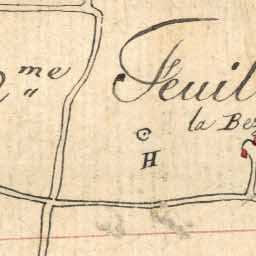 me
Feuil
la Be
H